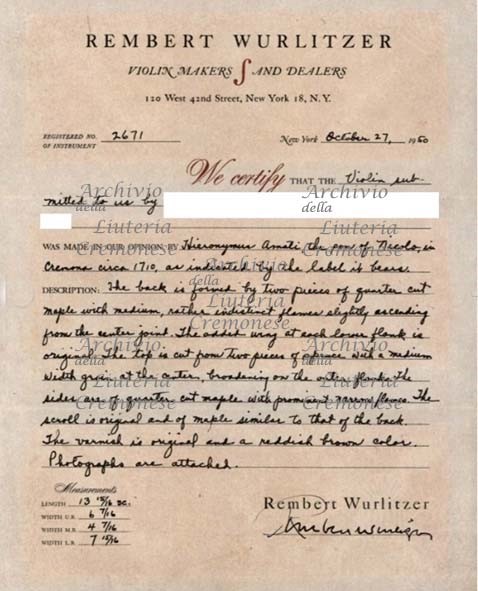 REMBERT WURLITZER
VIOLIN MAKERS AND DEALERS
120 West 42nd Street, New York 18, N.Y.
REGISTERED NO. OF INSTRUMENT 2671 New York October 27, 1950
We certify THAT THE Violin sub-
mitted to us by
WAS MADE IN OUR OPINION BY Hieronymus Amati the son of Nicolo, in
Cremona circa 1710, as indicated by the label it bears.
DESCRIPTION: The back is formed by two pieces of quarter cut
maple with medium, rather indistinct flames slightly ascending
from the center joint. The added wing at each lower flank is
original. The top is cut from two pieces of spruce with a medium
width grain at the center, broadening on the outer flanks. The
sides are of quarter cut maple with prominent narrow flames. The
scroll is original and of maple similar to that of the back.
The varnish is original and a reddish brown color.
Photographs are attached.
Measurements
LENGTH 13 15/16 sc.
WIDTH U.B. 6 7/16
WIDTH M.B. 4 7/16
WIDTH L.B. 7 15/16
Rembert Wurlitzer
Archivio
della
Liuteria
Cremonese
Archivio
della
Liuteria
Cremonese
Archivio
della
Liuteria
Cremonese
Archivio
della
Liuteria
Cremonese
Archivio
della
Liuteria
Cremonese